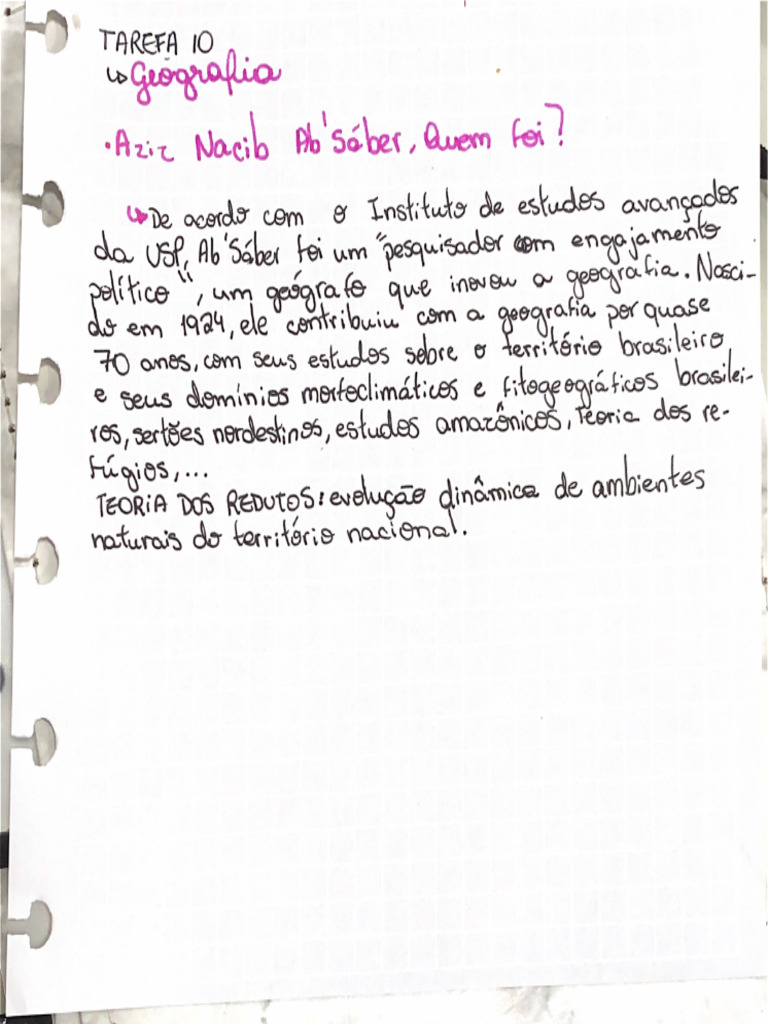 TAREFA 10
↳ Geografia
• Aziz Nacib Ab'Sáber, Quem foi?
↳ De acordo com o Instituto de estudos avançados
da USP, Ab'Sáber foi um "pesquisador com engajamento
político", um geógrafo que inovou a geografia. Nasci-
do em 1924, ele contribuiu com a geografia por quase
70 anos, com seus estudos sobre o território brasileiro
e seus domínios morfoclimáticos e fitogeográficos brasilei-
ros, sertões nordestinos, estudos amazônicos, Teoria dos re-
fúgios, ...
TEORIA DOS REDUTOS: evolução dinâmica de ambientes
naturais do território nacional.